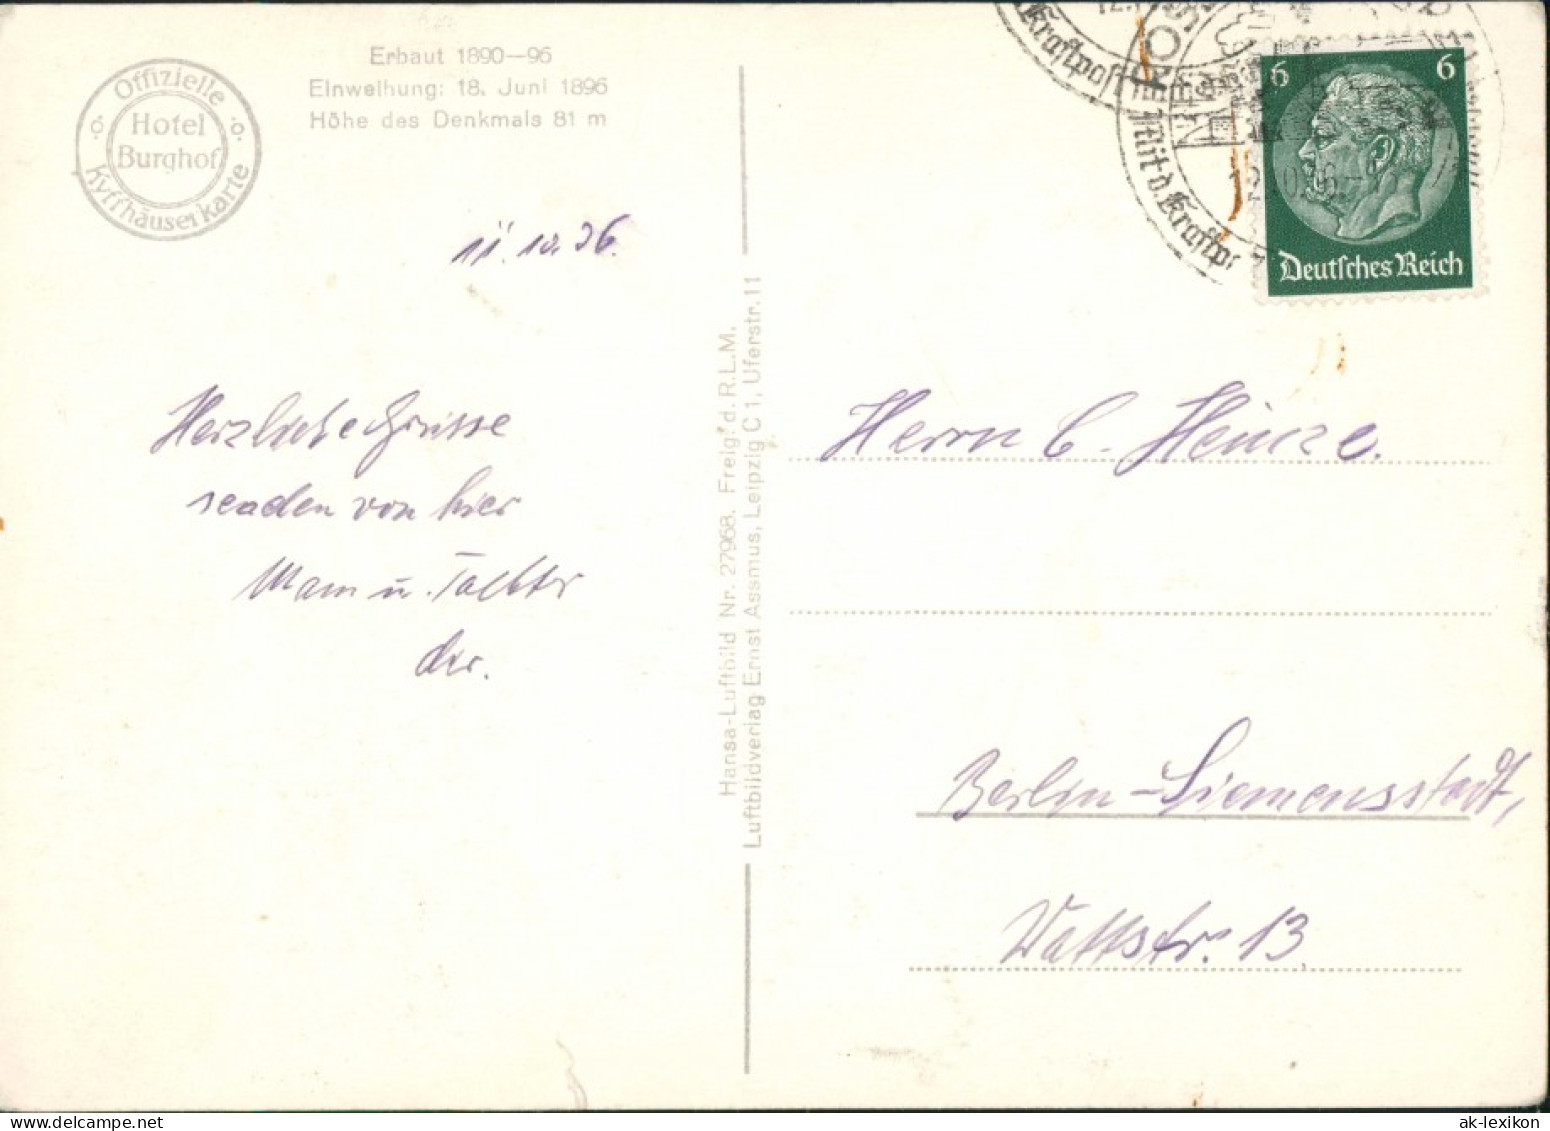 Erbaut 1890—96
Einweihung: 18. Juni 1896
Höhe des Denkmals 81 m
Offizielle
Hotel
Burghof
Kyffhäuserkarte
11. 10. 36.
Herzliche Grüsse
senden von hier
Mam u. Tochter
Hansa-Luftbild Nr. 27968. Freig. d. R.L.M.
Luftbildverlag Ernst Assmus, Leipzig C 1, Uferstr. 11
Kraftpost
Mit d. Kraftpo
6 6
Deutsches Reich
Herrn C. Heinze.
Berlin-Siemensstadt,
Wattstr. 13.
ak-lexikon